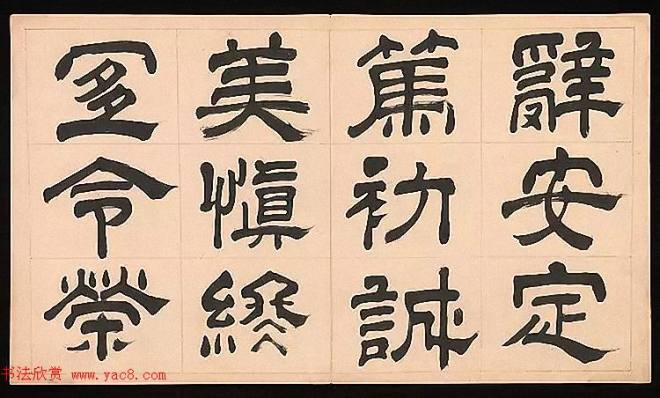 辭安定
篤初誠
美慎終
宜令榮
书法欣赏 www.yac8.com